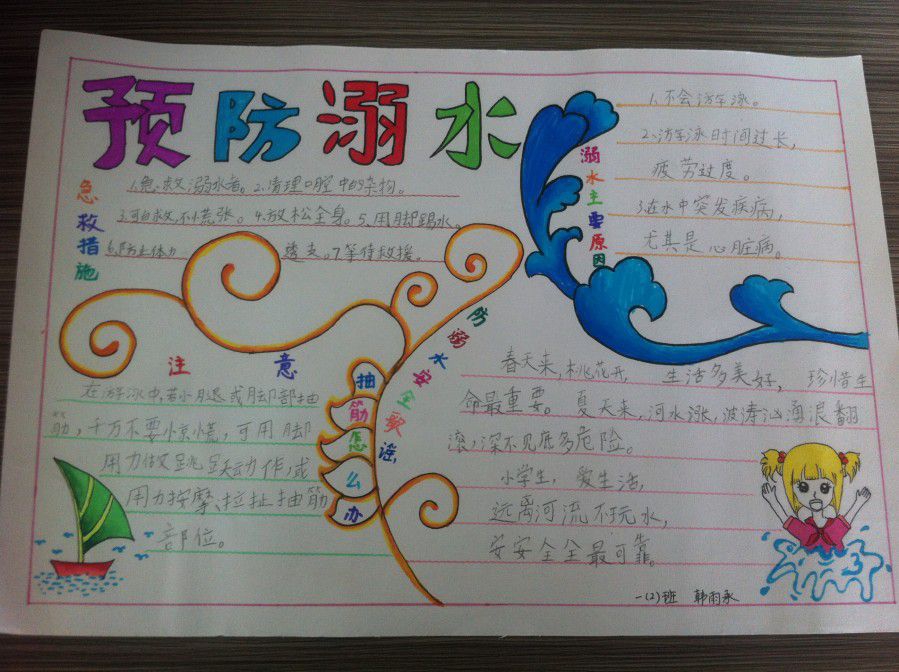 预防溺水
急救措施
1.急救溺水者。2.清理口腔中的杂物。
3.可自救,不慌张。4.放松全身。5.用脚踢水。
6.防止体力透支。7.等待救援。
溺水主要原因
1.不会游泳。
2.游泳时间过长,
疲劳过度。
3.在水中突发疾病,
尤其是心脏病。
注意
抽筋怎么办
在游泳中,若小腿或脚部抽
筋,千万不要惊慌,可用脚
用力做跳跃动作,或
用力按摩、拉扯抽筋
部位。
防溺水安全歌谣
春天来,桃花开,生活多美好,珍惜生
命最重要。夏天来,河水涨,波涛汹涌浪翻
滚,深不见底多危险。
小学生,爱生活,
远离河流不玩水,
安安全全最可靠。
一(2)班 韩雨